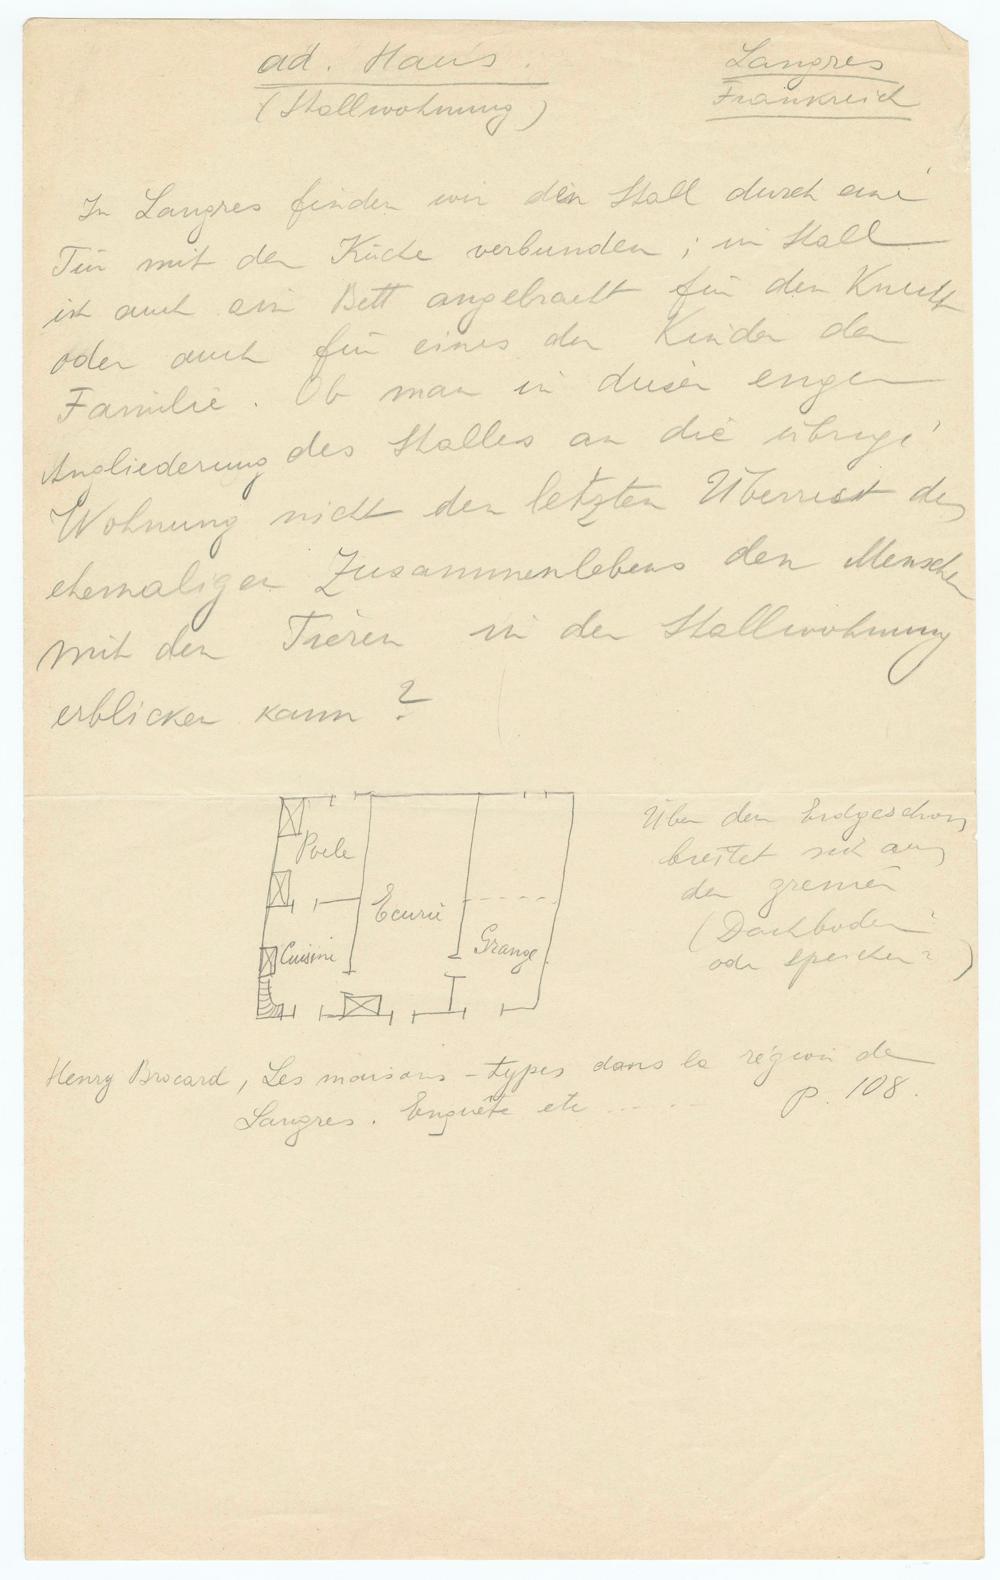 ad. Haus.
(Stallwohnung)
Langres
Frankreich
In Langres finden wir den Stall durch eine
Tür mit der Küche verbunden; im Stall
ist auch ein Bett angebracht für den Knecht
oder auch für eines der Kinder der
Familie. Ob man in dieser engen
Angliederung des Stalles an die übrige
Wohnung nicht den letzten Überrest des
ehemaligen Zusammenlebens der Menschen
mit den Tieren in der Stallwohnung
erblicken kann?
Poele
Ecurie
Cuisine
Grange
Über dem Erdgeschoss
breitet sich aus
der grenier
(Dachboden?
oder Speicher?)
Henry Brocard, Les maisons-types dans la région de
Langres. Enquête etc ..... p. 108.